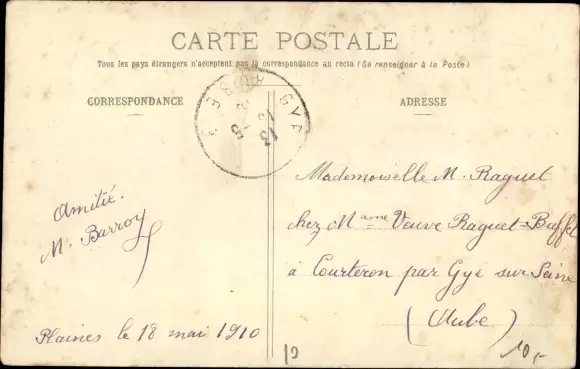 CARTE POSTALE
Tous les pays étrangers n'acceptent pas la correspondance au recto (Se renseigner à la Poste)
CORRESPONDANCE
ADRESSE
GYE
AUBE
13
Mademoiselle M. Raguet
chez Mame Veuve Raguet-Buffet
à Courteron par Gyé sur Seine
(Aube)
Amitié.
M. Barroy
Plaines le 18 mai 1910
10,-